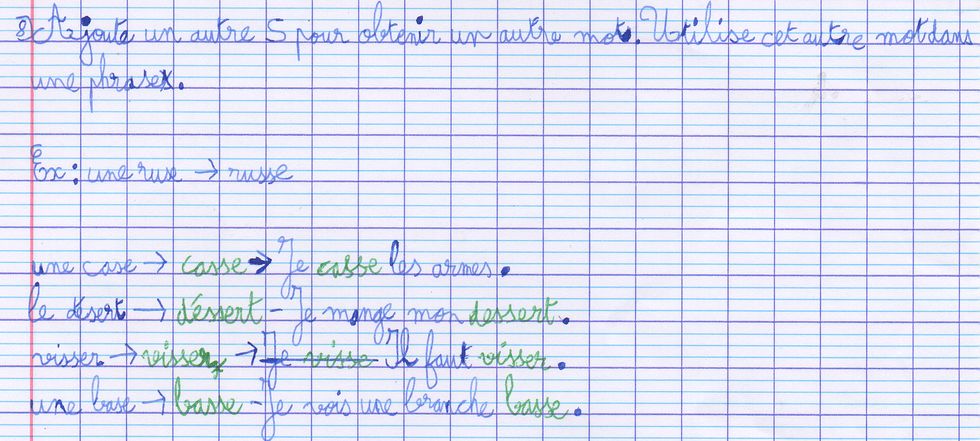 8) Ajoute un autre S pour obtenir un autre mot. Utilise cet autre mot dans
une phrase.
Ex : une ruse → russe
une case → casse → Je casse les armes.
le désert → déssert - Je mange mon dessert.
visser → visser → Je visse Il faut visser.
une base → basse - Je vois une branche basse.